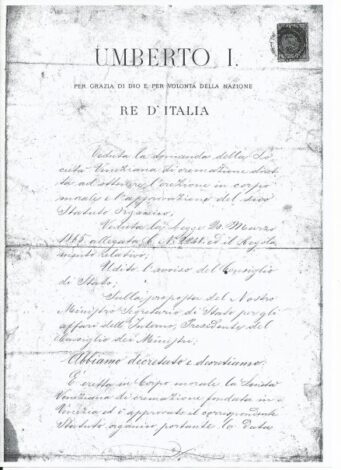 UMBERTO I.
PER GRAZIA DI DIO E PER VOLONTÀ DELLA NAZIONE
RE D'ITALIA
Veduta la domanda della So
cietà Veneziana di cremazione diret
ta ad ottenere l'erezione in corpo
morale e l'approvazione del suo
Statuto Organico,
Veduta la legge 20 Marzo
1865 allegato N. ed il Regola
mento relativo;
Udito l'avviso del Consiglio
di Stato;
Sulla proposta del Nostro
Ministro Segretario di Stato per gli
affari dell'Interno, Presidente del
Consiglio dei Ministri;
Abbiamo decretato e decretiamo:
È eretta in Corpo morale la Società
Veneziana di cremazione fondata in
Venezia ed è approvato il corrispondente
Statuto organico portante la data